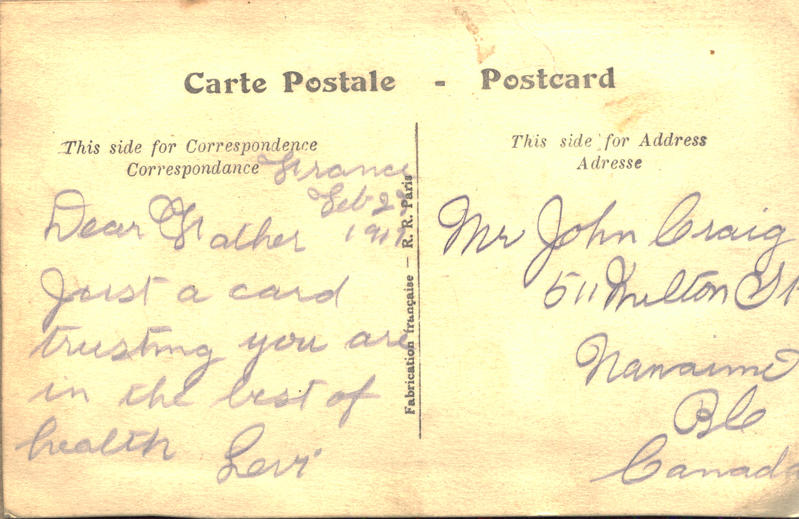 Carte Postale - Postcard
This side for Correspondence
Correspondance
France
Feb 28
1917
Dear Father
Just a card
trusting you are
in the best of
health Levi
Fabrication française — R. R. Paris
This side for Address
Adresse
Mr John Craig
511 Milton St
Nanaimo
BC
Canada